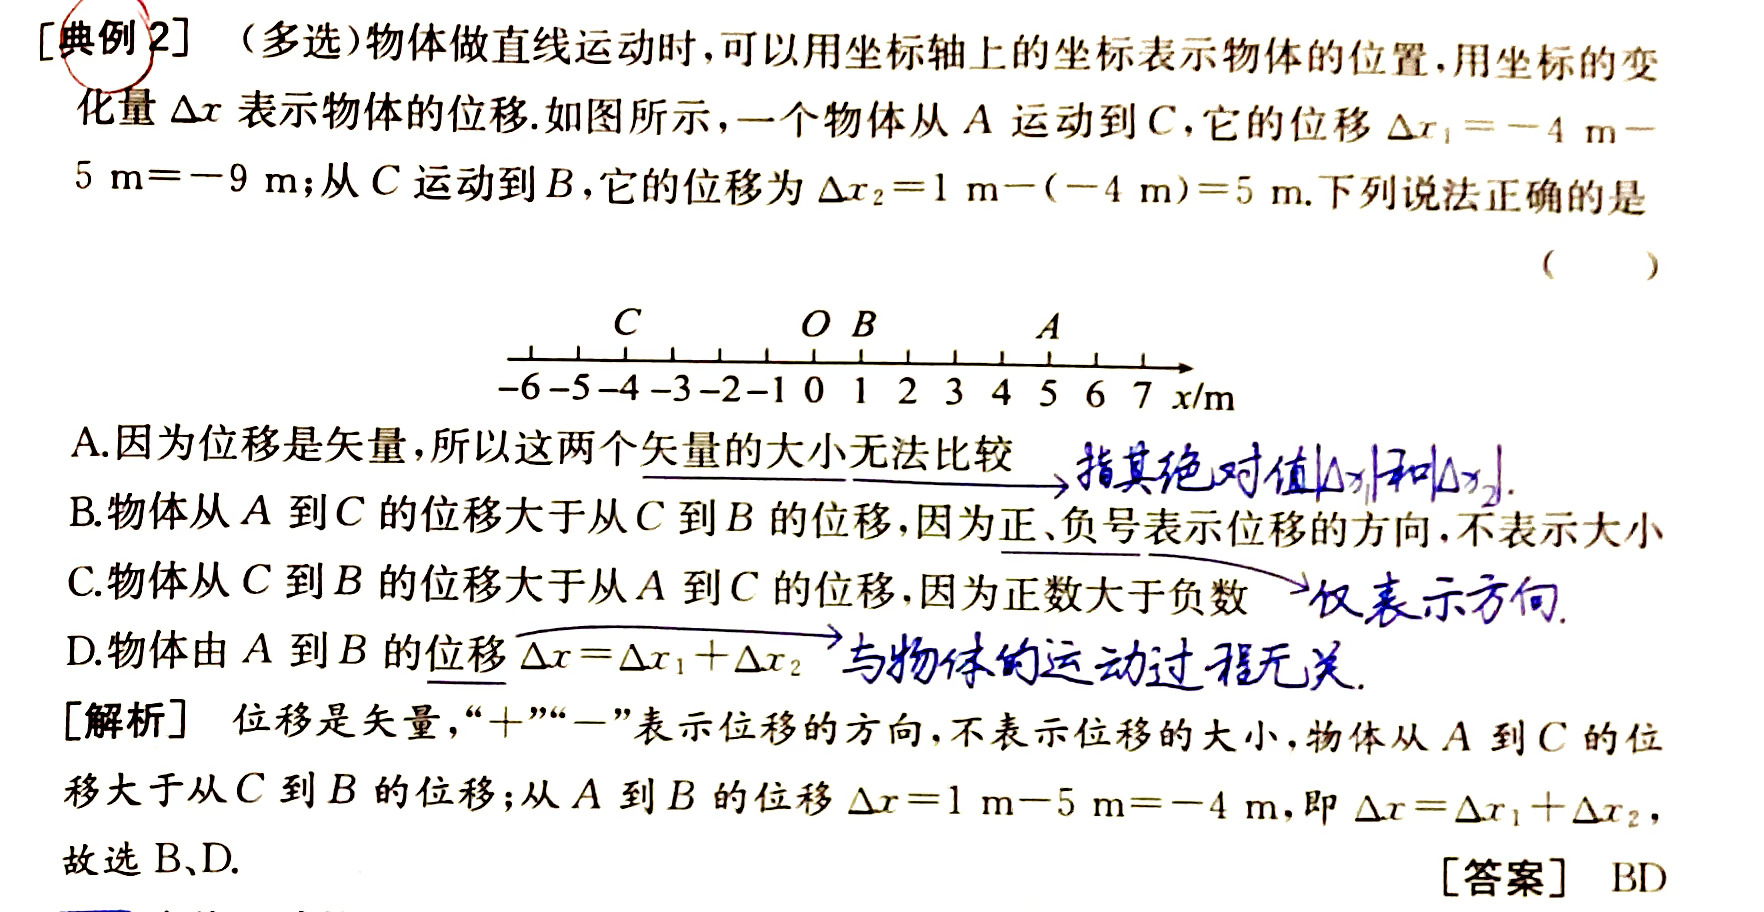 [典例2] (多选)物体做直线运动时,可以用坐标轴上的坐标表示物体的位置,用坐标的变
化量 Δx 表示物体的位移.如图所示,一个物体从 A 运动到C,它的位移 Δx₁=-4 m-
5 m=-9 m;从 C 运动到B,它的位移为 Δx₂=1 m-(-4 m)=5 m.下列说法正确的是
( )
C O B A
-6 -5 -4 -3 -2 -1 0 1 2 3 4 5 6 7 x/m
A.因为位移是矢量,所以这两个矢量的大小无法比较 指其绝对值|Δx₁|和|Δx₂|.
B.物体从 A 到C 的位移大于从C 到B 的位移,因为正、负号表示位移的方向,不表示大小
C.物体从 C 到B 的位移大于从 A 到C 的位移,因为正数大于负数 仅表示方向.
D.物体由 A 到B 的位移 Δx=Δx₁+Δx₂ 与物体的运动过程无关.
[解析] 位移是矢量,“+”“-”表示位移的方向,不表示位移的大小,物体从 A 到C 的位
移大于从C 到B 的位移;从 A 到B 的位移 Δx=1 m-5 m=-4 m,即 Δx=Δx₁+Δx₂,
故选 B、D.
[答案] BD